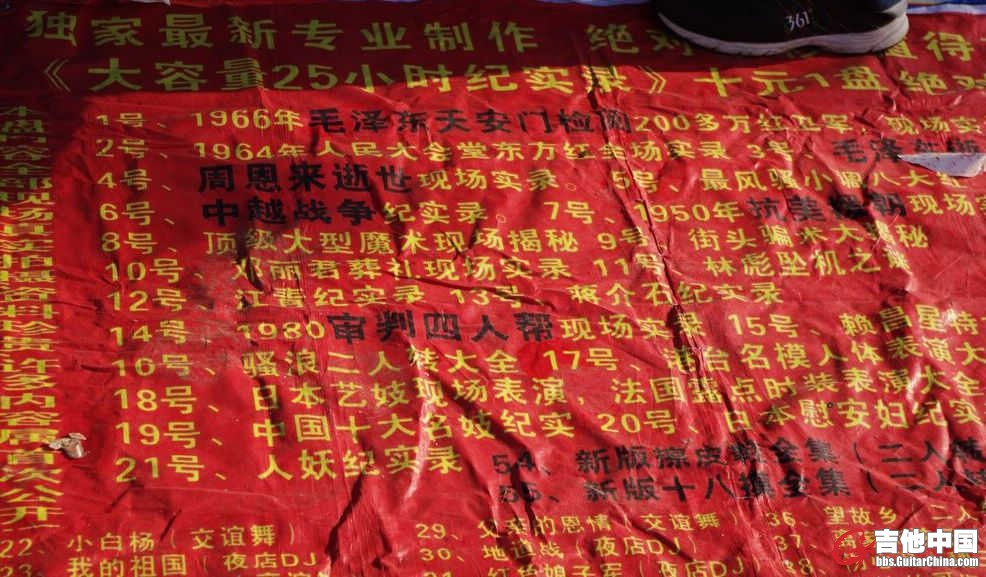 独家最新专业制作 绝对 值得
《大容量25小时纪实录》十元1盘绝对
本盘内容全部现场真实拍摄资料珍贵许多内容属首次公开
1号、1966年毛泽东天安门检阅200多万红卫军，现场实
2号、1964年人民大会堂东方红全场实录 3号、毛泽东
4号、周恩来逝世现场实录。 5号、最风骚小寡八大
6号、中越战争纪实录。 7号、1950年抗美援朝现场实
8号、顶级大型魔术现场揭秘 9号、街头骗术大揭秘
10号、邓丽君葬礼现场实录 11号、林彪坠机之谜
12号、江青纪实录 13号、蒋介石纪实录
14号、1980审判四人帮现场实录 15号、赖昌星特
16号、骚浪二人转大全 17号、港台名模人体表演大
18号、日本艺妓现场表演，法国露点时装表演大全
19号、中国十大名妓纪实 20号、日本慰安妇纪实
21号、人妖纪实录
54、新版擦皮鞋全集（二人转
55、新版十八摸全集（二人转
22、小白杨（交谊舞）
29、父亲的恩情（交谊舞）
36、望故乡（二人
23、我的祖国（夜店DJ
30、地道战（夜店DJ）
37、
31、红色娘子军（夜店DJ
38、
361°
吉他中国
bbs.GuitarChina.com